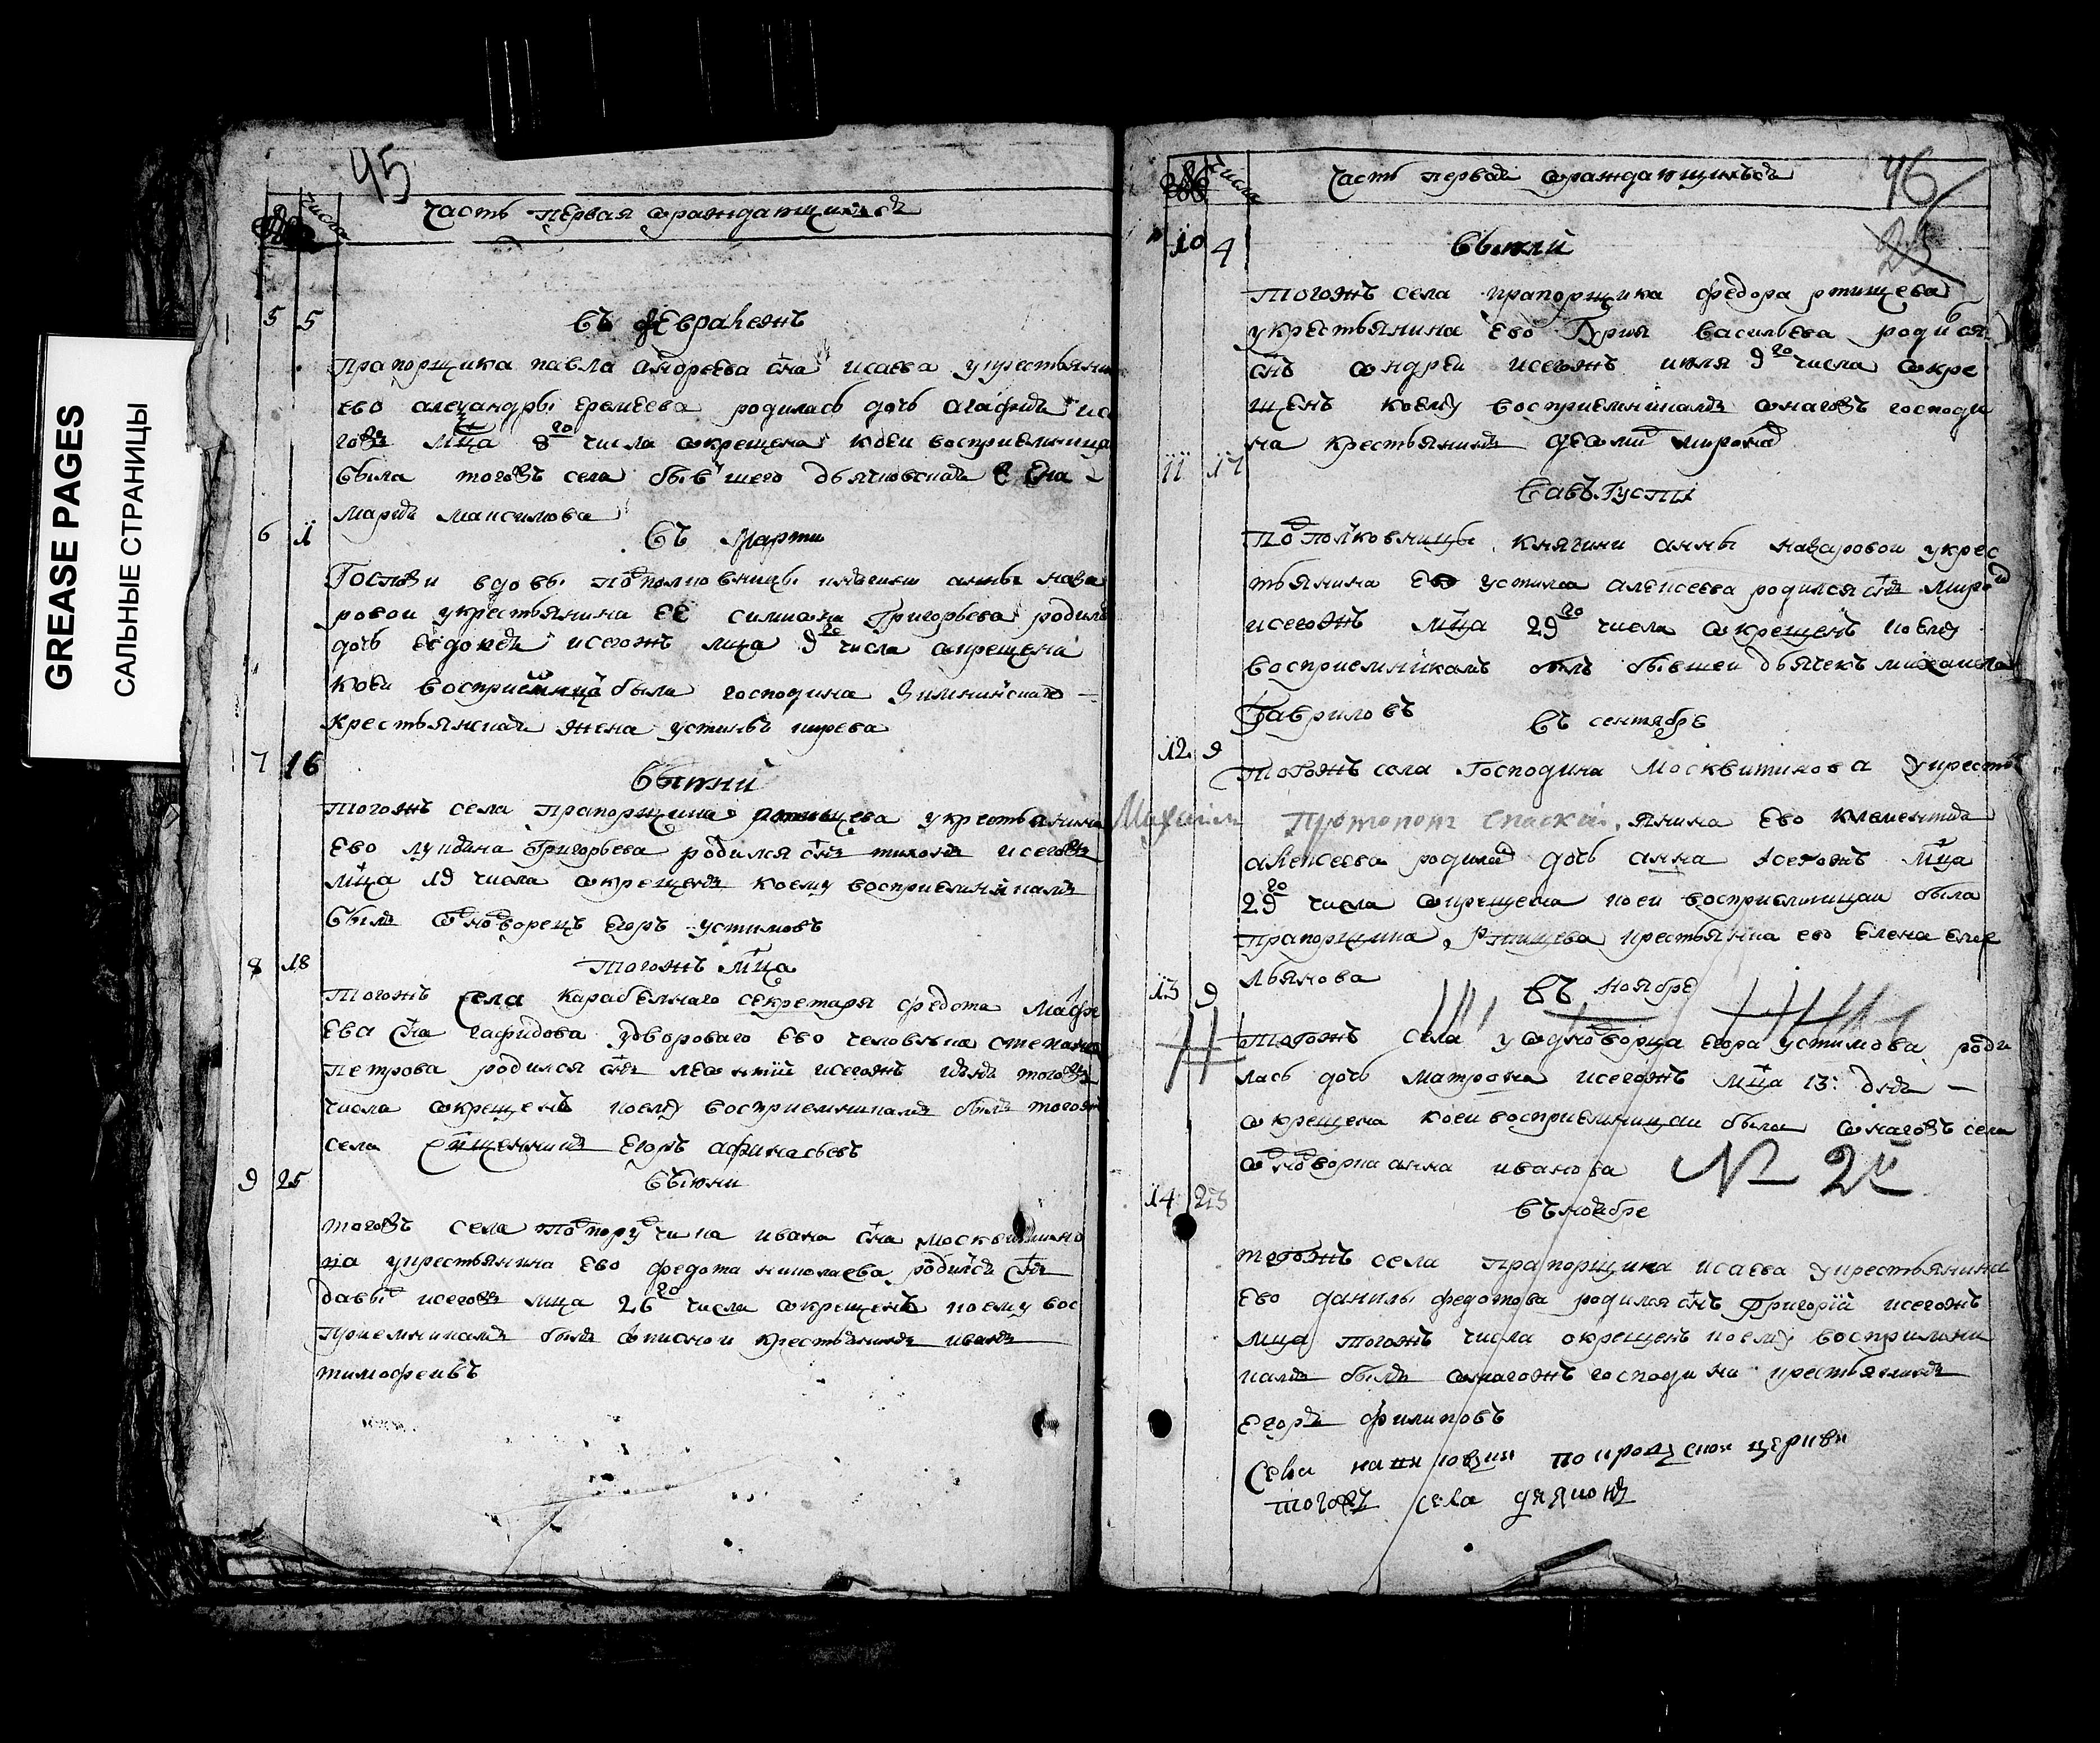 GREASE PAGES
САЛЬНЫЕ СТРАНИЦЫ
45
числа
часть первая ѡраждающихся
5 5
въ феврале жъ
прапорщика павла андреева сна исаева укрестьяни
ево алеѯандры еремеева родилась дочь агафия ис
гожъ мца 8го числа ѡкрещена коеи восприемница
была тогожъ села бывшего дьячковская жена
мария максимова
6 1
въ марти
Госпожи вдовы подполковницы княгини анны наза
ровои укрестьянина ее симиона Григорьева родилась
дочь евдокея исегожъ мца 9го числа ѡкрещена
коеи восприемница была господина Зиминскаго
крестьянская жена устинья
7 16
выюнии
тогожъ села прапорщика ртищева укрестьянина
ево лукьяна Григорьева родился снъ тихонъ исегожъ
мца 19 числа ѡкрещенъ коему восприемникамъ
былъ ѡднодворецъ егоръ устимовъ
8 18
тогожъ мца
тогожъ села карабельнаго секретаря федота мафе
ева сна удвороваго ево человека степана
петрова родился снъ леѡнтий исегожъ июня тогожъ
числа ѡкрещенъ коему восприемникамъ былъ тогожъ
села сщенникъ егоръ афанасьевъ
9 25
выюни
тогожъ села подпоручика ивана сна москвитино
ва укрестьянина ево федота николаева родился снъ
давыдъ исегожъ мца 26го числа ѡкрещенъ коему вос
приемникамъ былъ ѡписнои крестьянинъ иванъ
тимофеивъ
46
числа
часть первая ѡраждающихся
25
10 4
выюлии
тогожъ села прапорщика федора ртищева
укрестьянина ево Гурия васильева родился
снъ андреи исегожъ июля 9го числа ѡкре
щенъ коему восприемникамъ ѡнагожъ господи
на крестьянинъ миронов
11 17
вавъгусти
подполковницы княгини анны назаровои укрес
тьянина ее устина алексеева родился снъ миро
исегожъ мца 29го числа ѡкрещенъ коему
восприемникамъ былъ бывшеи дьячекъ михаила
Гавриловъ
въ сентябрѣ
12 9
тогожъ села Господина Москвитинова укресть
Михаилъ Протопоп Спаскій. янина ево климентия
алексеева родилась дочь анна исегожъ мца
29го числа ѡкрещена коеи восприемницаи была
прапорщика ртищева крестьянка ево елена емел
льянова
13 9
въ ноябре
тогожъ села уѡднодворца егора устимова роди
лась дочь матрона исегожъ мца 13: дня
ѡкрещена коеи восприемницаи была ѡнагожъ села
ѡднодворка анна иванова
N 2
14 23
въ ноябре
тогожъ села прапорщика исаева укрестьянина
ево данилы федотова родился снъ Григорій исегожъ
мца тогожъ числа окрещенъ коему восприемни
камъ былъ ѡнагожъ господина крестьянинъ
егоръ филиповъ
села покровской церкви
тогожъ села дьяконъ